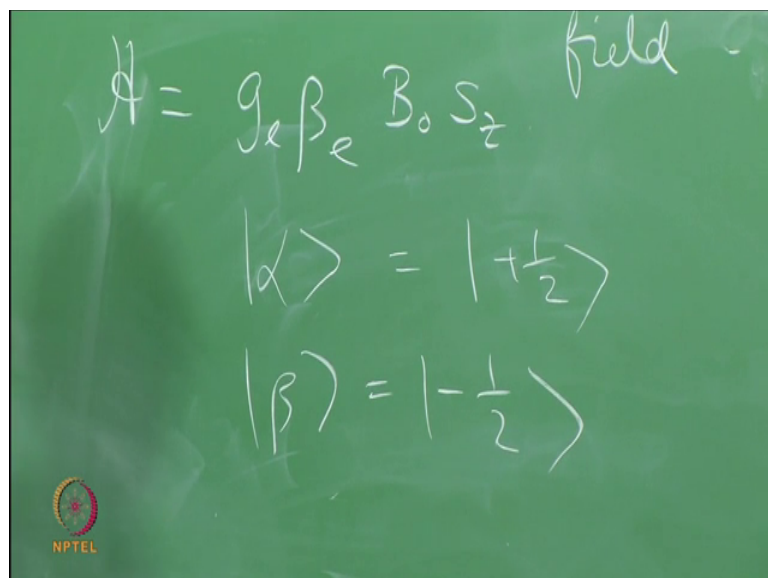 field
H = gₑ βₑ B₀ S_z
|α⟩ = |+1/2⟩
|β⟩ = |-1/2⟩
NPTEL